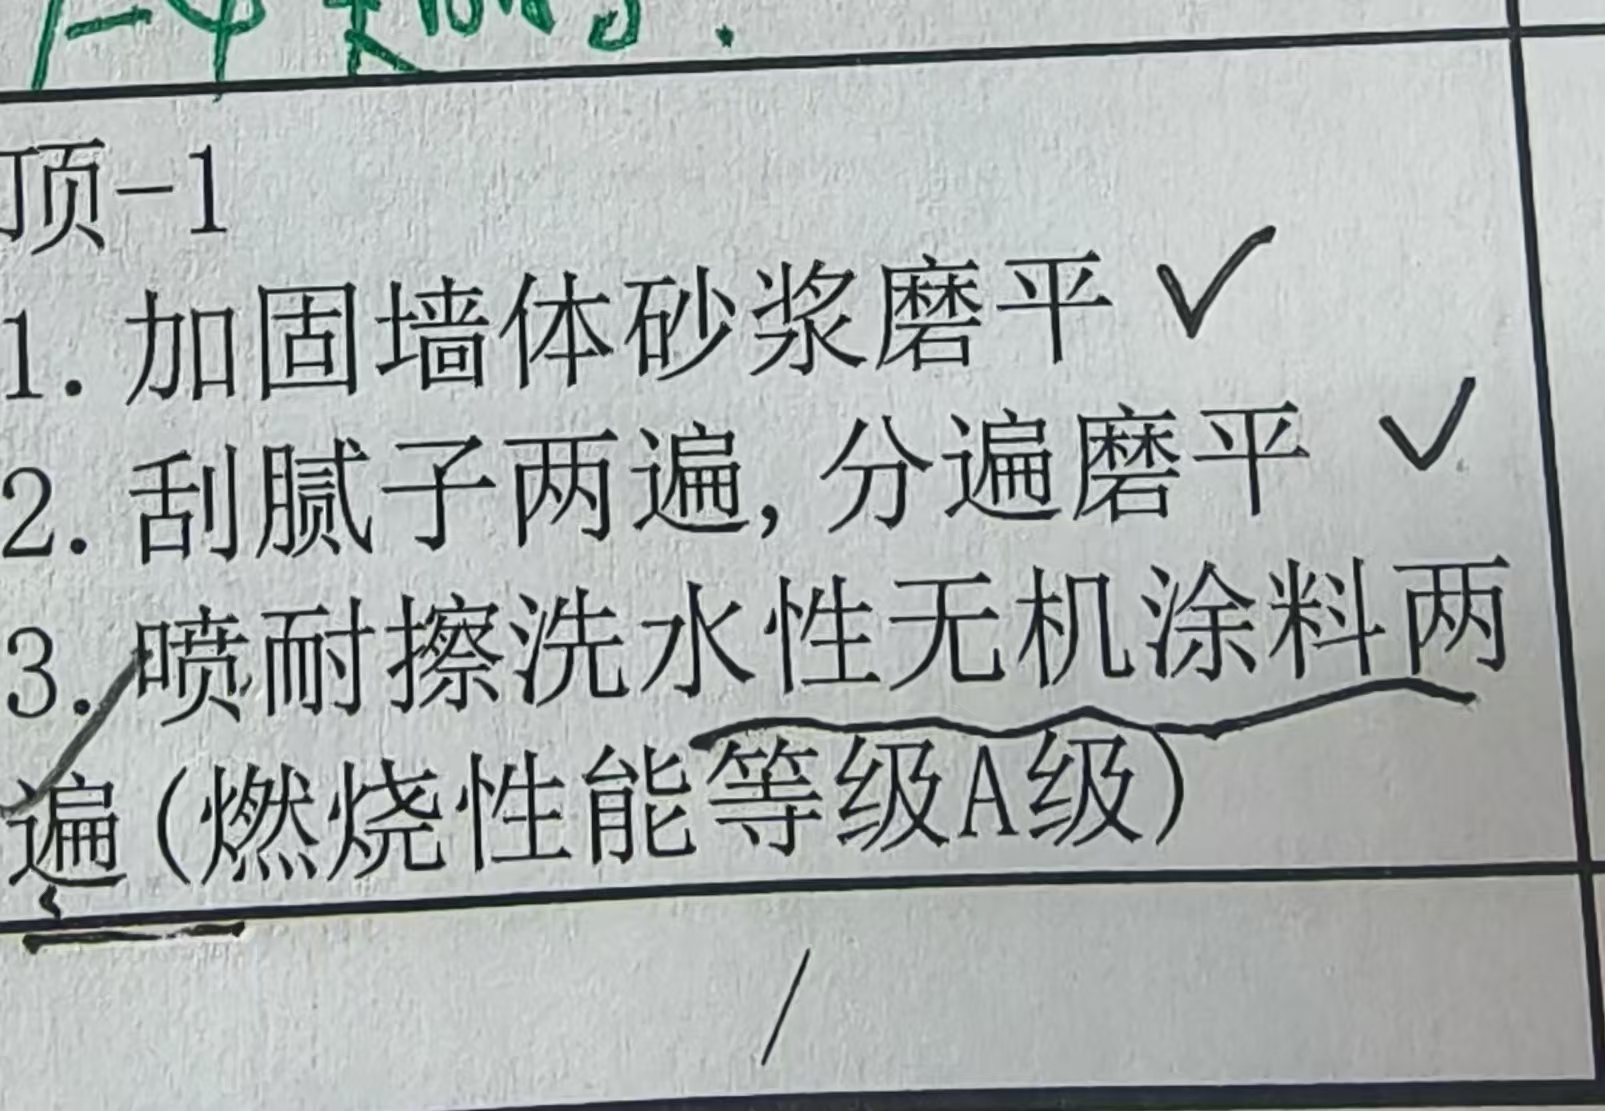 顶-1
1. 加固墙体砂浆磨平 ✓
2. 刮腻子两遍, 分遍磨平 ✓
3. 喷耐擦洗水性无机涂料两
遍(燃烧性能等级A级)
/